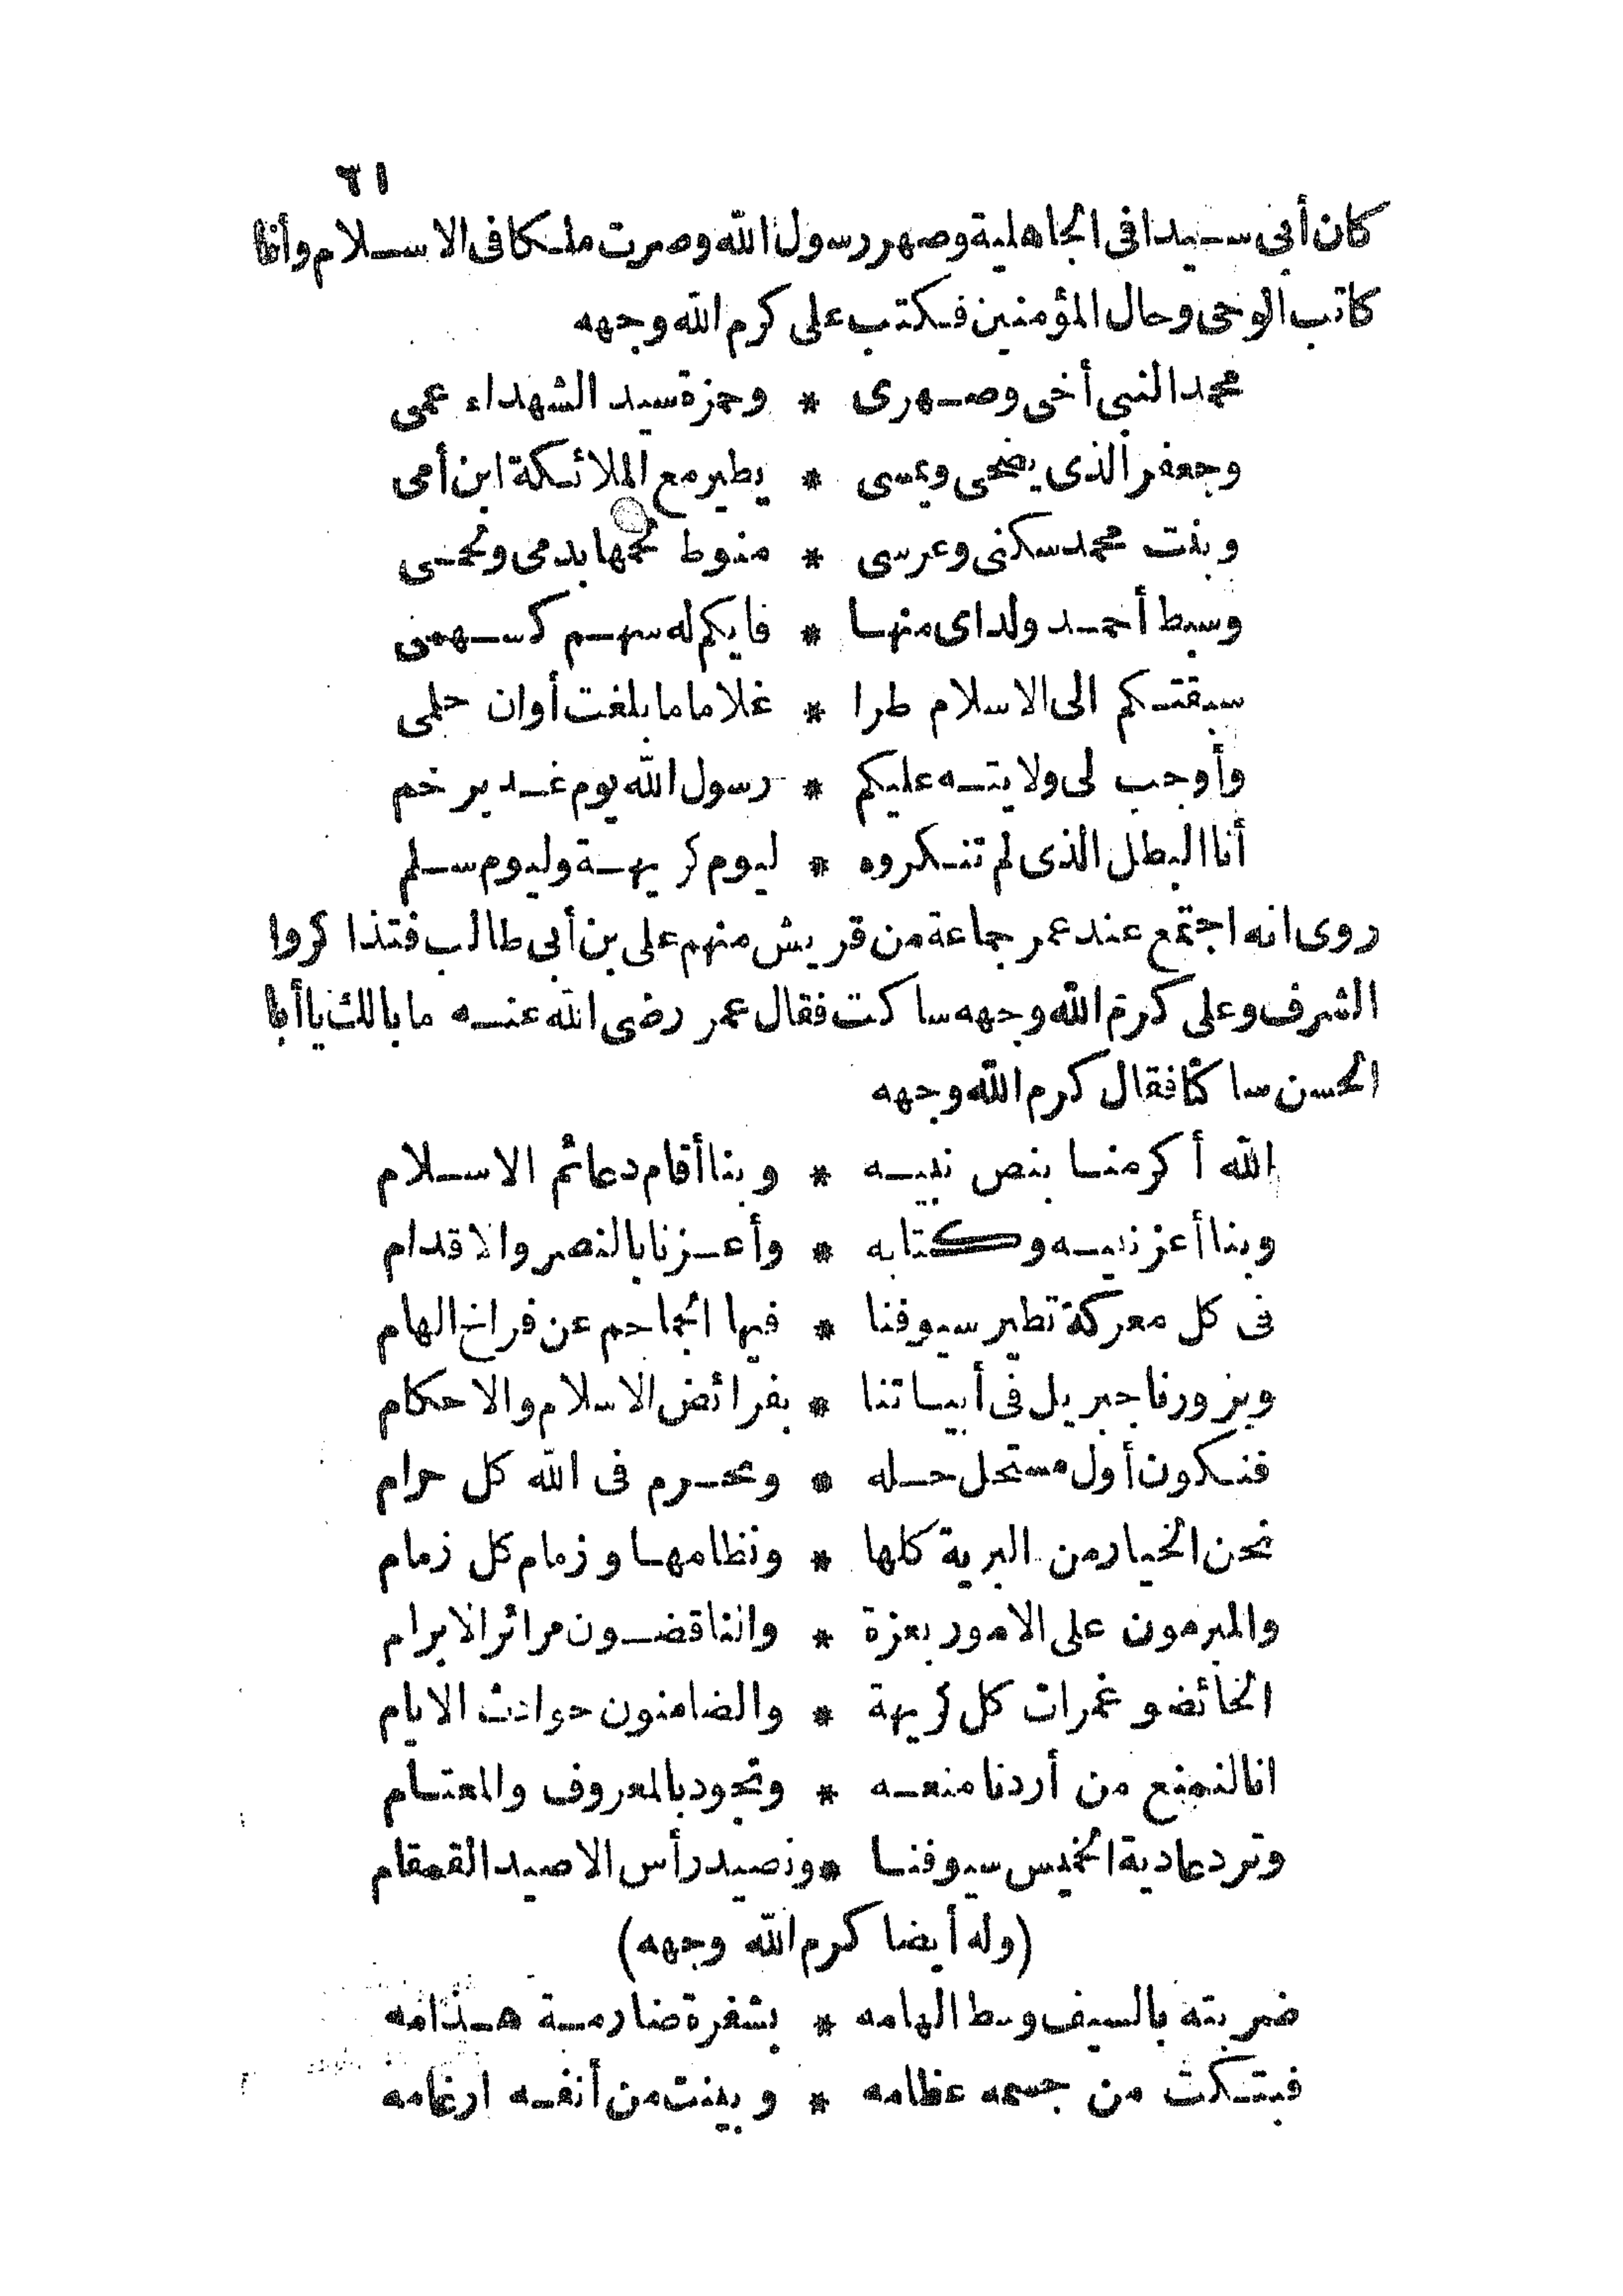 ٦١
كان أبى سيدا فى الجاهلية وصهر رسول الله وصرت ملكا فى الاسلام وأنا
كاتب الوحى وحال المؤمنين فكتب على كرم الله وجهه
محمد النبى أخى وصهرى * وحمزة سيد الشهداء عمى
وجعفر الذى يضحى ويمسى * يطير مع الملائكة ابن أمى
وبنت محمد سكنى وعرسى * منوط لحمها بدمى ولحمى
وسبط أحمد ولداى منها * فايكم له سهم كسهمى
سبقتكم الى الاسلام طرا * غلاما ما بلغت أوان حلمى
وأوجب لى ولايته عليكم * رسول الله يوم غدير خم
أنا البطل الذى لم تنكروه * ليوم كريهة وليوم سلم
روى انه اجتمع عند عمر جماعة من قريش منهم على بن أبى طالب فتذاكروا
الشرف وعلى كرم الله وجهه ساكت فقال عمر رضى الله عنه مابالك ياأبا
الحسن ساكتا فقال كرم الله وجهه
الله أكرمنا بنص نبيه * وبنا أقام دعائم الاسلام
وبنا أعز نبيه وكتابه * وأعزنا بالنصر والاقدام
فى كل معركة تطير سيوفنا * فيها الجماجم عن فراخ الهام
ويزورنا جبريل فى أبياتنا * بفرائض الاسلام والاحكام
فنكون أول مستحل حله * ومحرم فى الله كل حرام
نحن الخيار من البرية كلها * ونظامها وزمام كل زمام
والمبرمون على الامور بعزة * والناقضون مرائر الابرام
الخائضو غمرات كل كريهة * والضامنون حوادث الايام
انا لنمنع من أردنا منعه * ونجود بالمعروف والمعتام
وترد عادية الخميس سيوفنا * ونصيد رأس الاصيد القمقام
(وله أيضا كرم الله وجهه)
ضربته بالسيف وسط الهامه * بشفرة ضارمة هذامه
فبتكت من جسمه عظامه * وبينت من أنفه ارغامه